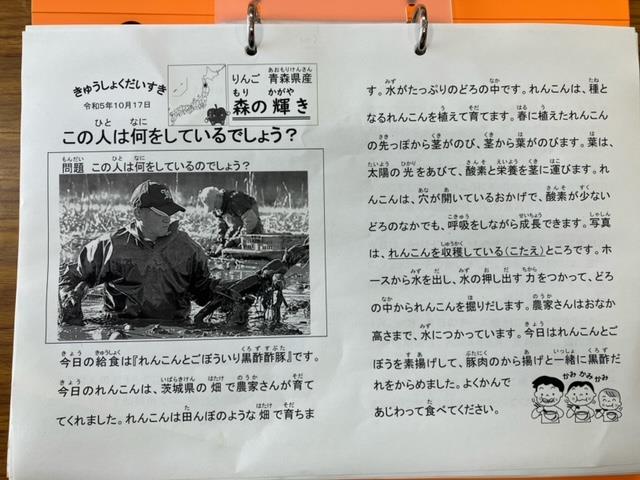 きゅうしょくだいすき
令和5年10月17日
りんご 青森県産
森の輝き
この人は何をしているでしょう？
問題 この人は何をしているのでしょう？
今日の給食は『れんこんとごぼういり黒酢酢豚』です。
今日のれんこんは、茨城県の畑で農家さんが育て
てくれました。れんこんは田んぼのような畑で育ちま
す。水がたっぷりのどろの中です。れんこんは、種と
なるれんこんを植えて育てます。春に植えたれんこん
の先っぽから茎がのび、茎から葉がのびます。葉は、
太陽の光をあびて、酸素と栄養を茎に運びます。れ
んこんは、穴が開いているおかげで、酸素が少ない
どろのなかでも、呼吸をしながら成長できます。写真
は、れんこんを収穫している(こたえ)ところです。ホ
ースから水を出し、水の押し出す力をつかって、どろ
の中かられんこんを掘りだします。農家さんはおなか
高さまで、水につかっています。今日はれんこんとご
ぼうを素揚げして、豚肉のから揚げと一緒に黒酢だ
れをからめました。よくかんで
あじわって食べてください。
かみ かみ かみ